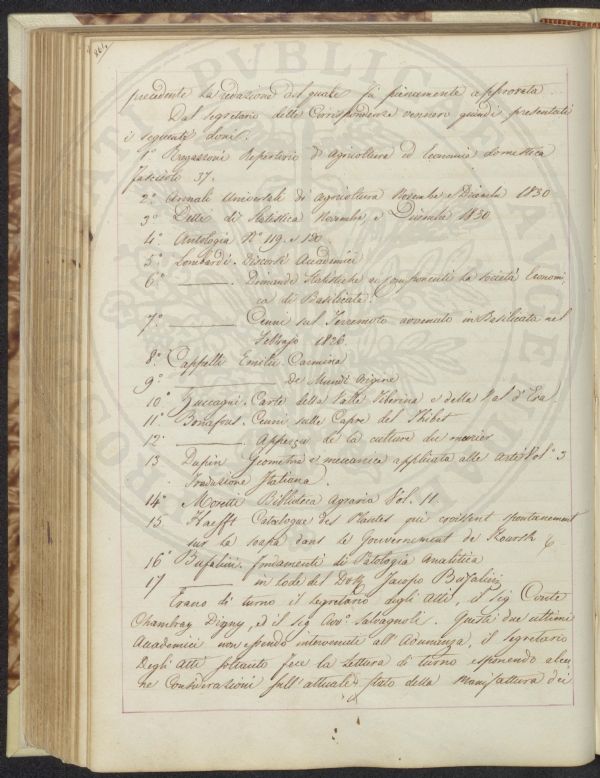 precedente la redazione del quale fu pienamente approvata.
Dal segretario delle Corrispondenze vennero quindi presentati
i seguenti doni.
1° Ragazzoni Repertorio di Agricoltura ed Economia domestica
fascicolo 37.
2° Annali Universali di agricoltura Novembre e Dicembre 1830
3° Detti di Statistica Novembre e Dicembre 1830
4° Antologia N° 119. e 120.
5° Lombardi. Discorsi Accademici
6° ———. Dimande Statistiche ai componenti la Società Economi-
ca di Basilicata.
7° ——— Cenni sul Terremoto avvenuto in Basilicata nel
Febbrajo 1826.
8° Cappelli Emilii Carmina
9° ——— de Mundi Origine
10° Zuccagni. Carte della Valle Tiberina e della Val d'Era
11° Bonafous. Cenni sulle Capre del Thibet
12° ———. Apperçu de la culture du murier
13 Dupin Geometria e meccanica applicata alle Arti Vol° 3
Traduzione Italiana.
14° Moretti Biblioteca Agraria Vol. 11.
15 Haefft Catalogue des Plantes qui croissent spontanement
sur la dans le Gouvernement de Koursk
16° Bufalini. fondamenti di Patologia Analitica
17 ——— in lode del Dott. Jacopo Bufalini
Erano di turno il segretario degli Atti, il Sig Conte
Chambray Digny, ed il Sig Avv° Salvagnoli. Questi due ultimi
Accademici non essendo intervenuti all'Adunanza, il segretario
Degli Atti soltanto fece la Lettura di turno esponendo alcu-
ne Considerazioni sull'attuale stato della Manifattura dei